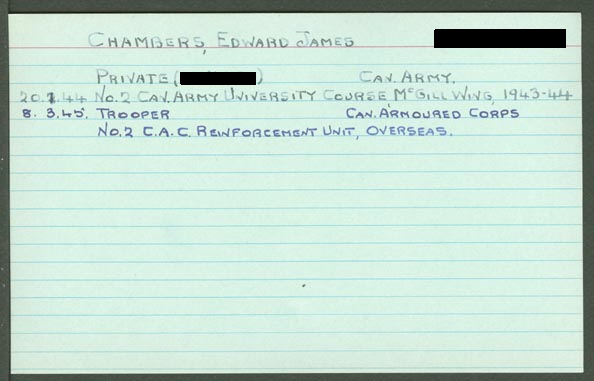 CHAMBERS, EDWARD JAMES
PRIVATE ( ) CAN. ARMY.
20.1.44 No.2 CAN. ARMY UNIVERSITY COURSE, McGILL WING, 1943-44
8. 3.45. TROOPER CAN. ARMOURED CORPS
No.2 C.A.C. REINFORCEMENT UNIT, OVERSEAS.